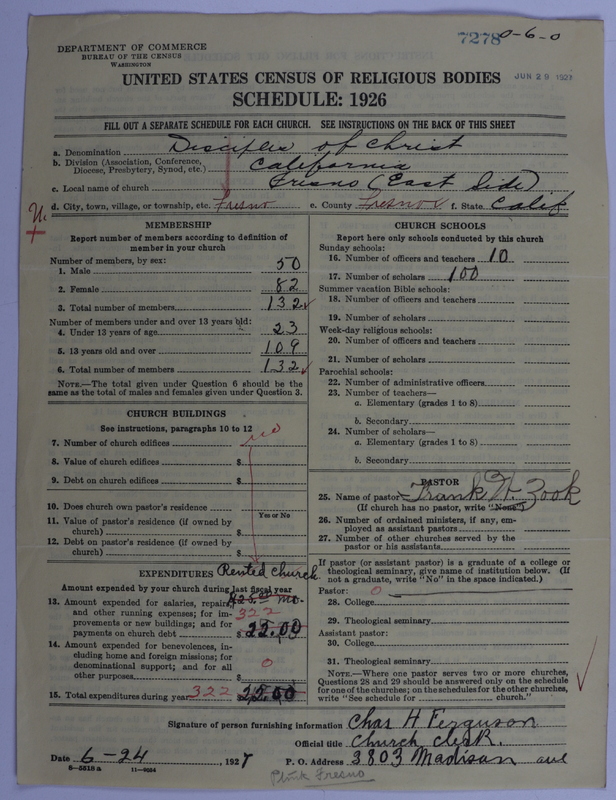 7278 0-6-0
DEPARTMENT OF COMMERCE
BUREAU OF THE CENSUS
WASHINGTON
JUN 29 1927
UNITED STATES CENSUS OF RELIGIOUS BODIES
SCHEDULE: 1926
FILL OUT A SEPARATE SCHEDULE FOR EACH CHURCH. SEE INSTRUCTIONS ON THE BACK OF THIS SHEET
a. Denomination Disciples of Christ
b. Division (Association, Conference, Diocese, Presbytery, Synod, etc.) California
c. Local name of church Fresno (East Side)
d. City, town, village, or township, etc. Fresno e. County Fresno f. State Calif
MEMBERSHIP
Report number of members according to definition of member in your church
Number of members, by sex:
1. Male 50
2. Female 82
3. Total number of members 132
Number of members under and over 13 years old:
4. Under 13 years of age 23
5. 13 years old and over 109
6. Total number of members 132
NOTE.—The total given under Question 6 should be the same as the total of males and females given under Question 3.
CHURCH BUILDINGS
See instructions, paragraphs 10 to 12
7. Number of church edifices no
8. Value of church edifices $
9. Debt on church edifices $
10. Does church own pastor's residence
Yes or No
11. Value of pastor's residence (if owned by church) $
12. Debt on pastor's residence (if owned by church) $
EXPENDITURES Rented church
Amount expended by your church during last fiscal year
13. Amount expended for salaries, repairs, and other running expenses; for improvements or new buildings; and for payments on church debt $ 322 22.00
14. Amount expended for benevolences, including home and foreign missions; for denominational support; and for all other purposes $ 0
15. Total expenditures during year 322 22.00
CHURCH SCHOOLS
Report here only schools conducted by this church
Sunday schools:
16. Number of officers and teachers 10
17. Number of scholars 100
Summer vacation Bible schools:
18. Number of officers and teachers
19. Number of scholars
Week-day religious schools:
20. Number of officers and teachers
21. Number of scholars
Parochial schools:
22. Number of administrative officers
23. Number of teachers—
a. Elementary (grades 1 to 8)
b. Secondary
24. Number of scholars—
a. Elementary (grades 1 to 8)
b. Secondary
PASTOR
25. Name of pastor Frank H. Zook
(If church has no pastor, write "None")
26. Number of ordained ministers, if any, employed as assistant pastors
27. Number of other churches served by the pastor or his assistants
If pastor (or assistant pastor) is a graduate of a college or theological seminary, give name of institution below. (If not a graduate, write "No" in the space indicated.)
Pastor: 0
28. College
29. Theological seminary
Assistant pastor:
30. College
31. Theological seminary
NOTE.—Where one pastor serves two or more churches, Questions 28 and 29 should be answered only on the schedule for one of the churches; on the schedules for the other churches, write "See schedule for church."
Signature of person furnishing information Chas H Ferguson
Official title Church clerk.
Date 6-24, 1927 P. O. Address 3803 Madison ave
8—5319 a 11—9054
Fresno